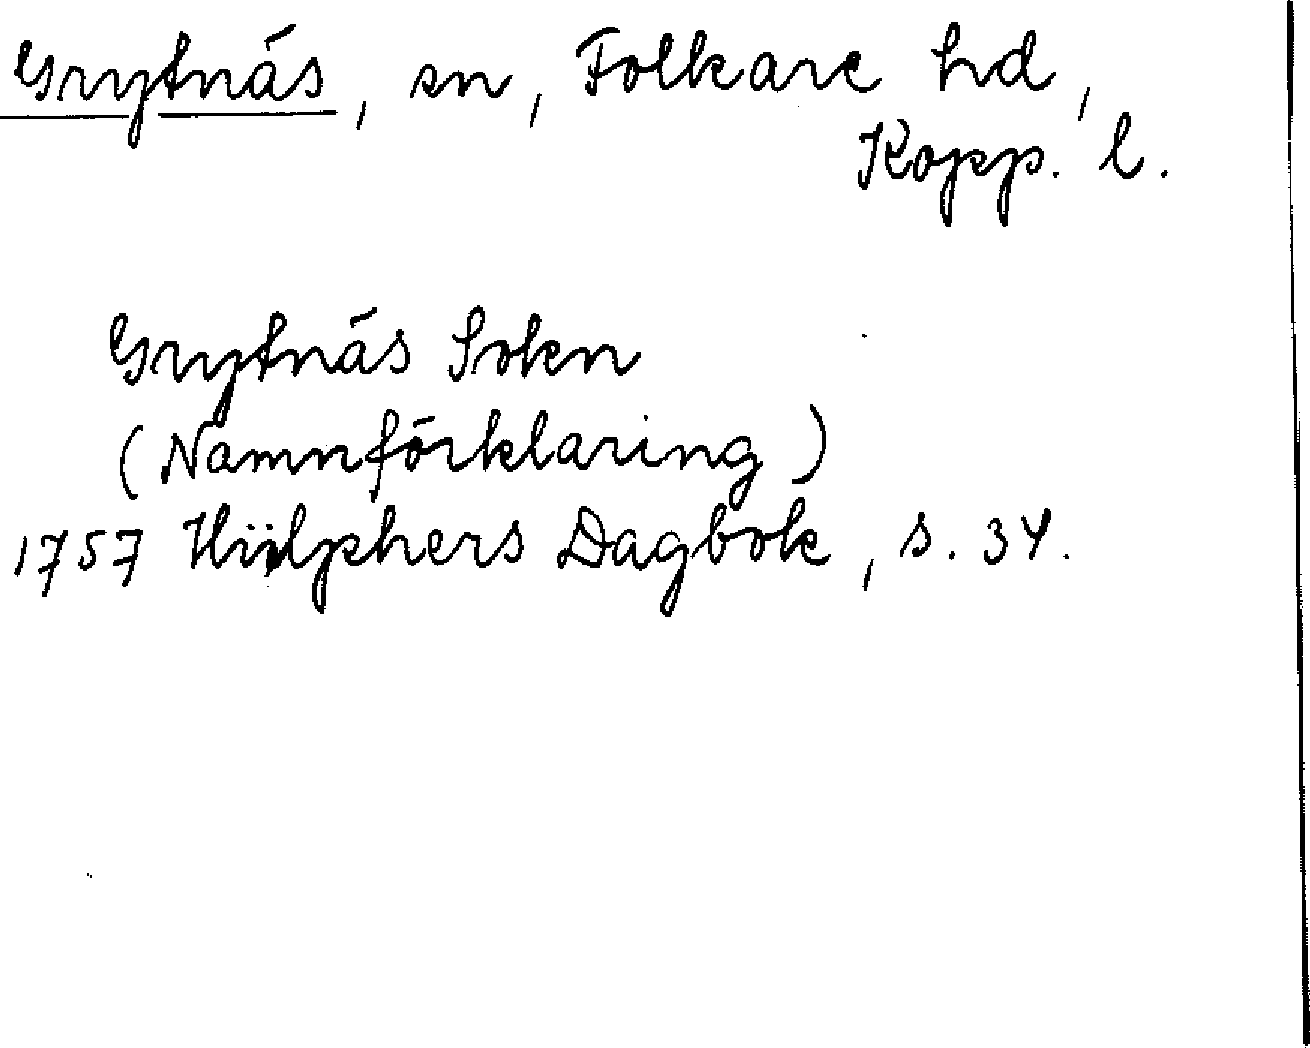 Grytnäs, sn, Folkare hd,
Kopp. l.
Grytnäs Sokn
(Namnförklaring)
1757 Hülphers Dagbok, s. 34.